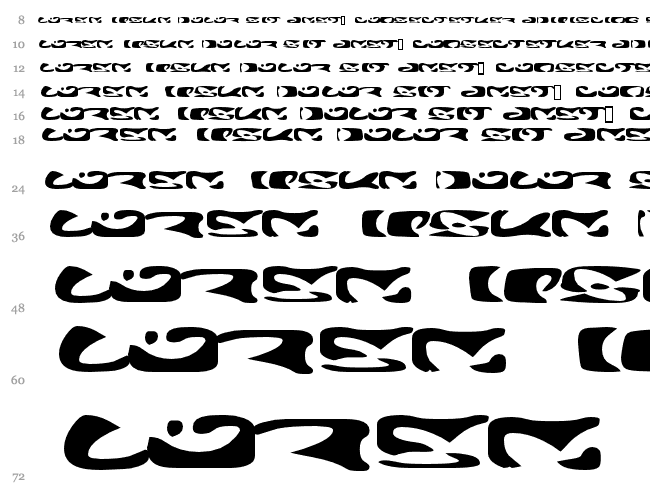 8 Lorem ipsum dolor sit amet▯ consectetuer adipiscing
10 Lorem ipsum dolor sit amet▯ consectetuer
12 Lorem ipsum dolor sit amet▯
14 Lorem ipsum dolor sit amet▯
16 Lorem ipsum dolor sit amet▯
18 Lorem ipsum dolor sit
24 Lorem ipsum dolor
36 Lorem ipsum
48 Lorem
60 Lorem
72 Lorem